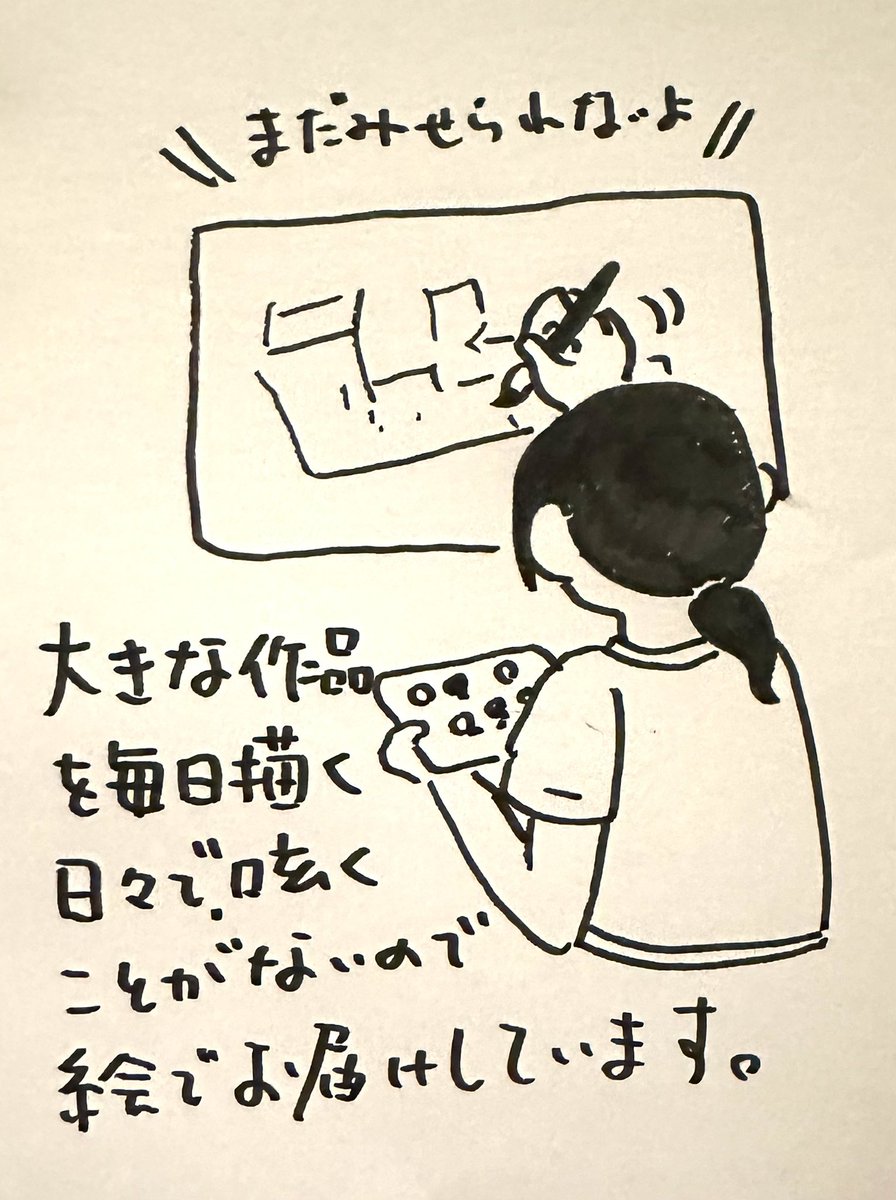 まだみせられないよ
大きな作品
を毎日描く
日々で、呟く
ことがないので
絵でお届けしています。